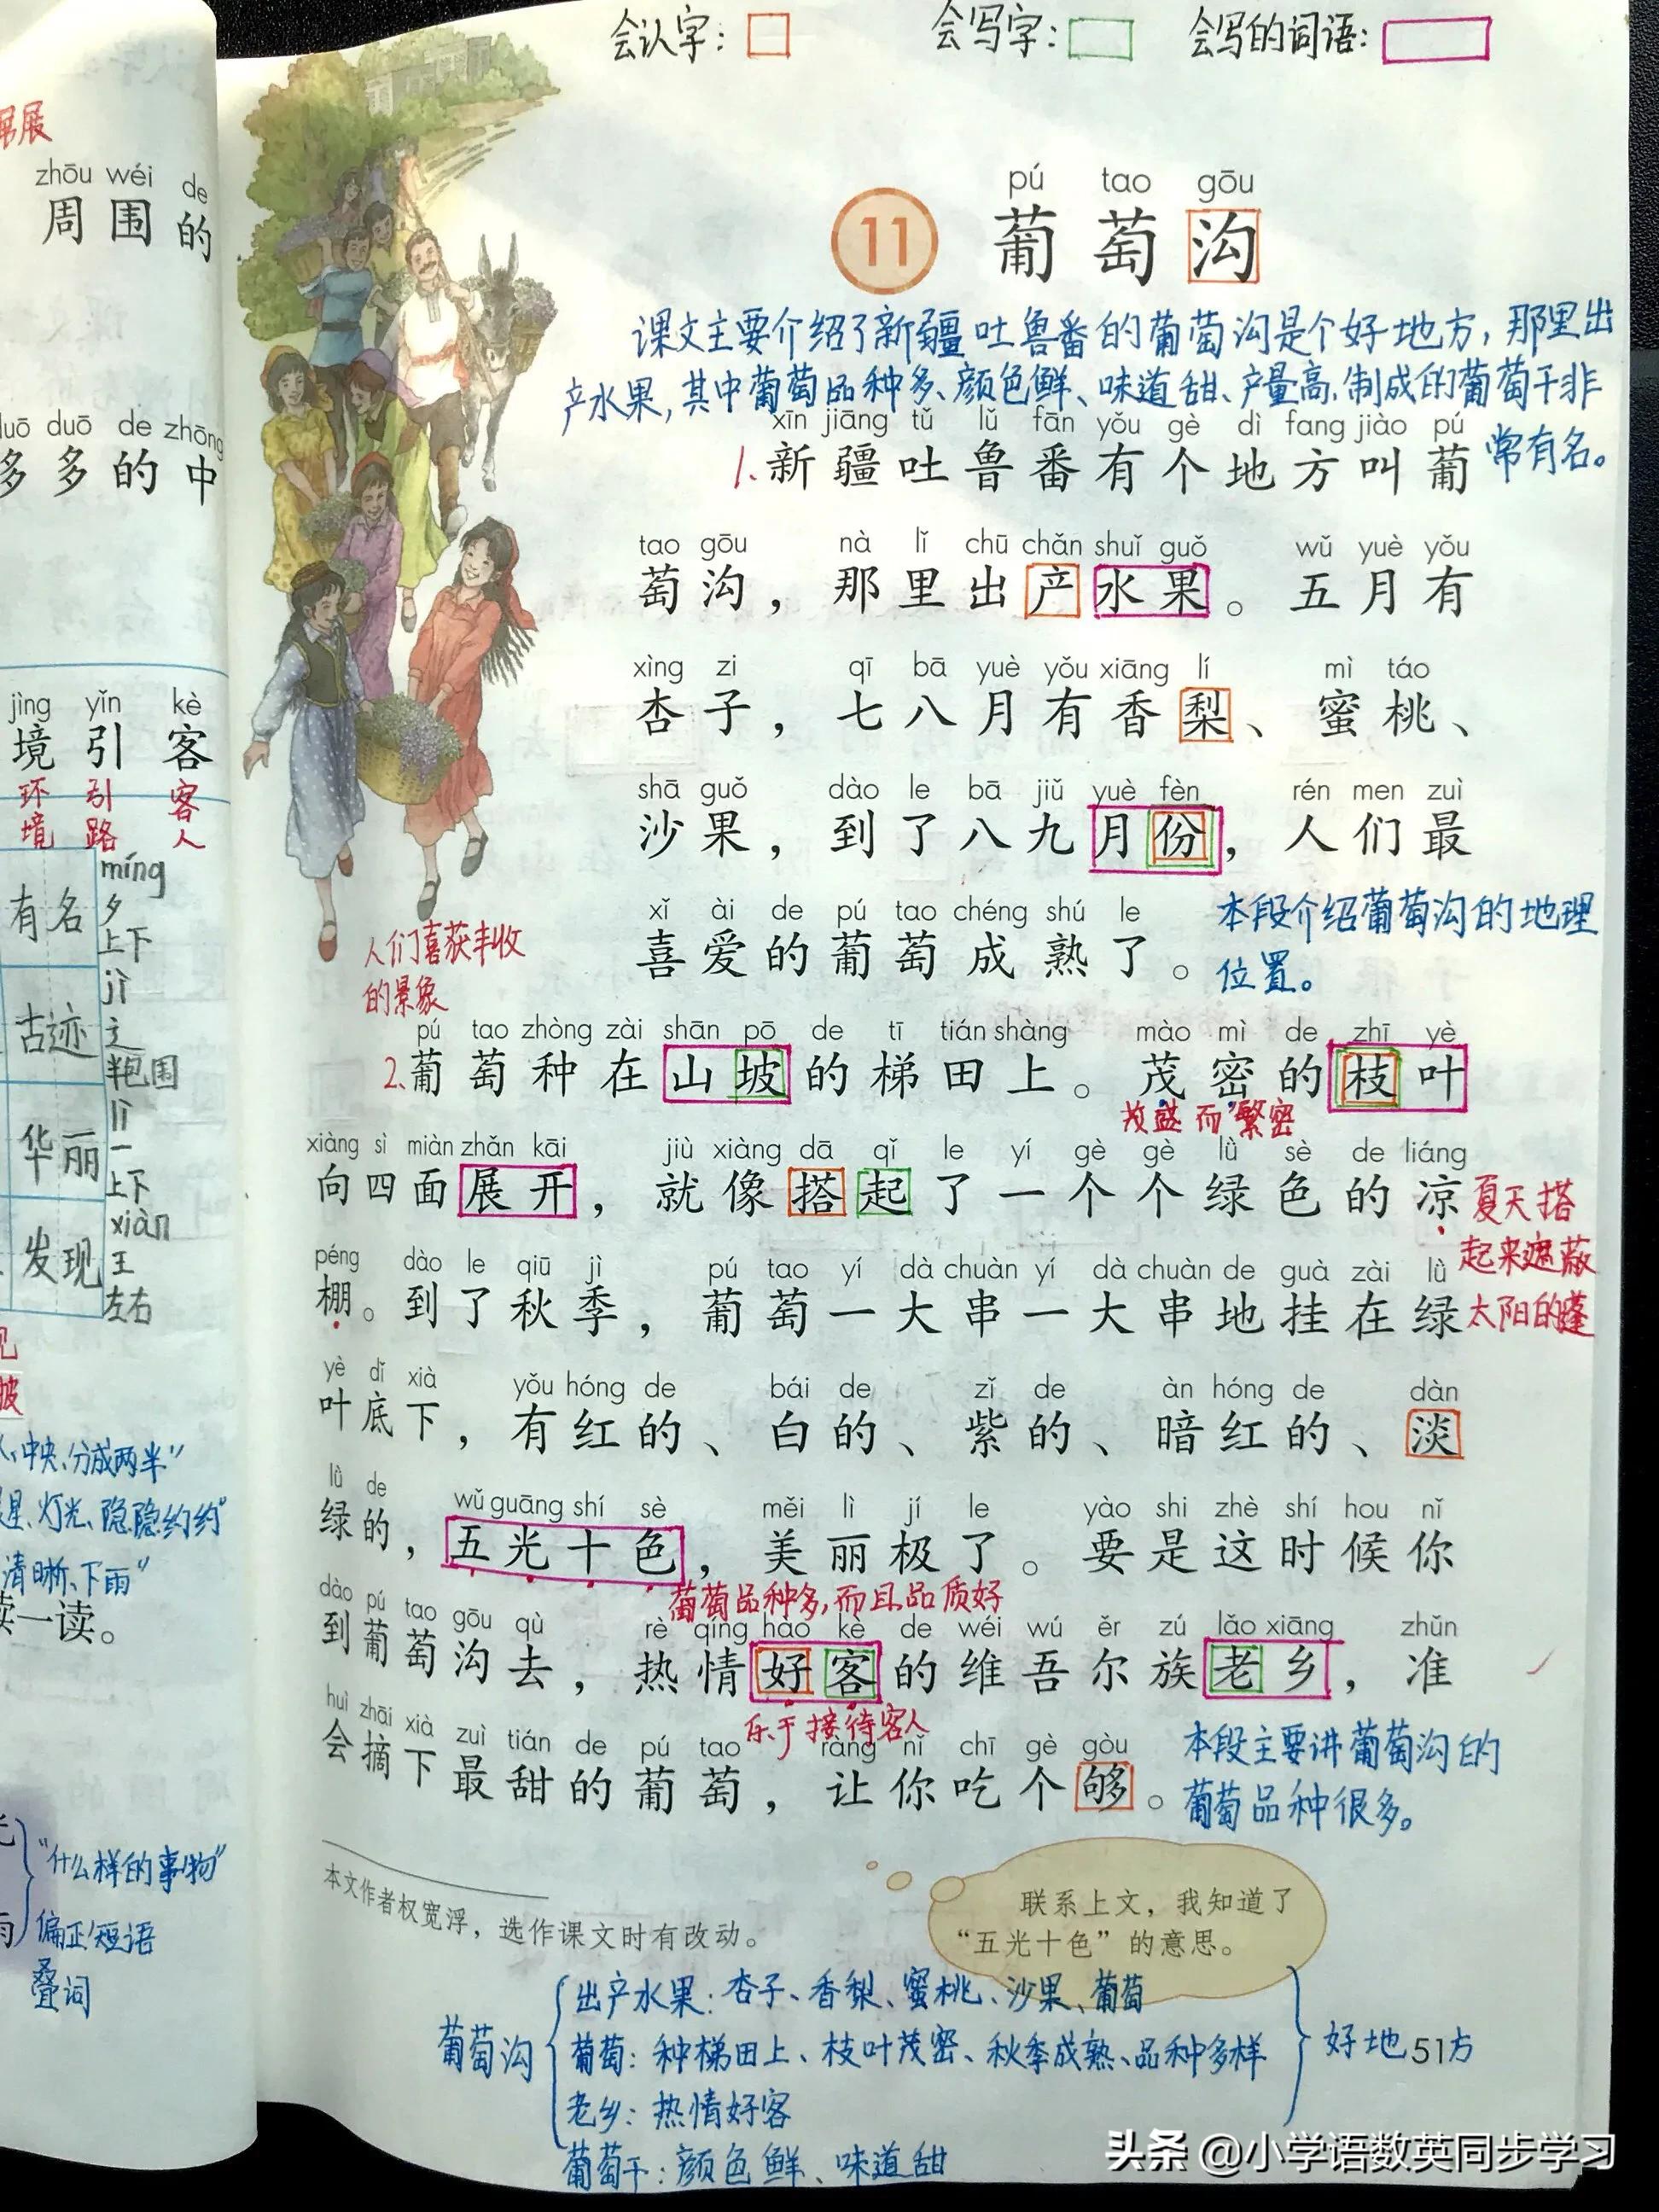 会认字：
会写字：
会写的词语：
展
zhōu wéi de
周围的
duō duō de zhōng
多多的中
jìng yǐn kè
境 引 客
环境 引路 客人
有名
míng
夕
上下
古迹
jì
辶
半包围
华丽
lì
一
上下
发现
xiàn
王
左右
中央、分成两半”
灯光、隐隐约约”
清晰、下雨”
读一读。
“什么样的事物”
偏正短语
叠词
pú tao gōu
11 葡萄沟
课文主要介绍了新疆吐鲁番的葡萄沟是个好地方，那里出
产水果，其中葡萄品种多、颜色鲜、味道甜、产量高，制成的葡萄干非
常有名。
xīn jiāng tǔ lǔ fān yǒu gè dì fang jiào pú
1.新疆吐鲁番有个地方叫葡
tao gōu nà lǐ chū chǎn shuǐ guǒ wǔ yuè yǒu
萄沟，那里出产水果。五月有
xìng zi qī bā yuè yǒu xiāng lí mì táo
杏子，七八月有香梨、蜜桃、
shā guǒ dào le bā jiǔ yuè fèn rén men zuì
沙果，到了八九月份，人们最
xǐ ài de pú tao chéng shú le
喜爱的葡萄成熟了。
本段介绍葡萄沟的地理
位置。
人们喜获丰收
的景象
pú tao zhòng zài shān pō de tī tián shàng mào mì de zhī yè
2.葡萄种在山坡的梯田上。茂密的枝叶
茂盛而繁密
xiàng sì miàn zhǎn kāi jiù xiàng dā qǐ le yí gè gè lǜ sè de liáng
向四面展开，就像搭起了一个个绿色的凉
夏天搭
起来遮蔽
太阳的蓬
péng dào le qiū jì pú tao yí dà chuàn yí dà chuàn de guà zài lǜ
棚。到了秋季，葡萄一大串一大串地挂在绿
yè dǐ xià yǒu hóng de bái de zǐ de àn hóng de dàn
叶底下，有红的、白的、紫的、暗红的、淡
lǜ de wǔ guāng shí sè měi lì jí le yào shi zhè shí hou nǐ
绿的，五光十色，美丽极了。要是这时候你
葡萄品种多，而且品质好
dào pú tao gōu qù rè qíng hào kè de wéi wú ěr zú lǎo xiāng zhǔn
到葡萄沟去，热情好客的维吾尔族老乡，准
乐于接待客人
huì zhāi xià zuì tián de pú tao ràng nǐ chī gè gòu
会摘下最甜的葡萄，让你吃个够。
本段主要讲葡萄沟的
葡萄品种很多。
本文作者权宽浮，选作课文时有改动。
联系上文，我知道了
“五光十色”的意思。
葡萄沟
出产水果：杏子、香梨、蜜桃、沙果、葡萄
葡萄：种梯田上、枝叶茂密、秋季成熟、品种多样
老乡：热情好客
葡萄干：颜色鲜、味道甜
好地方
51
头条 @小学语数英同步学习